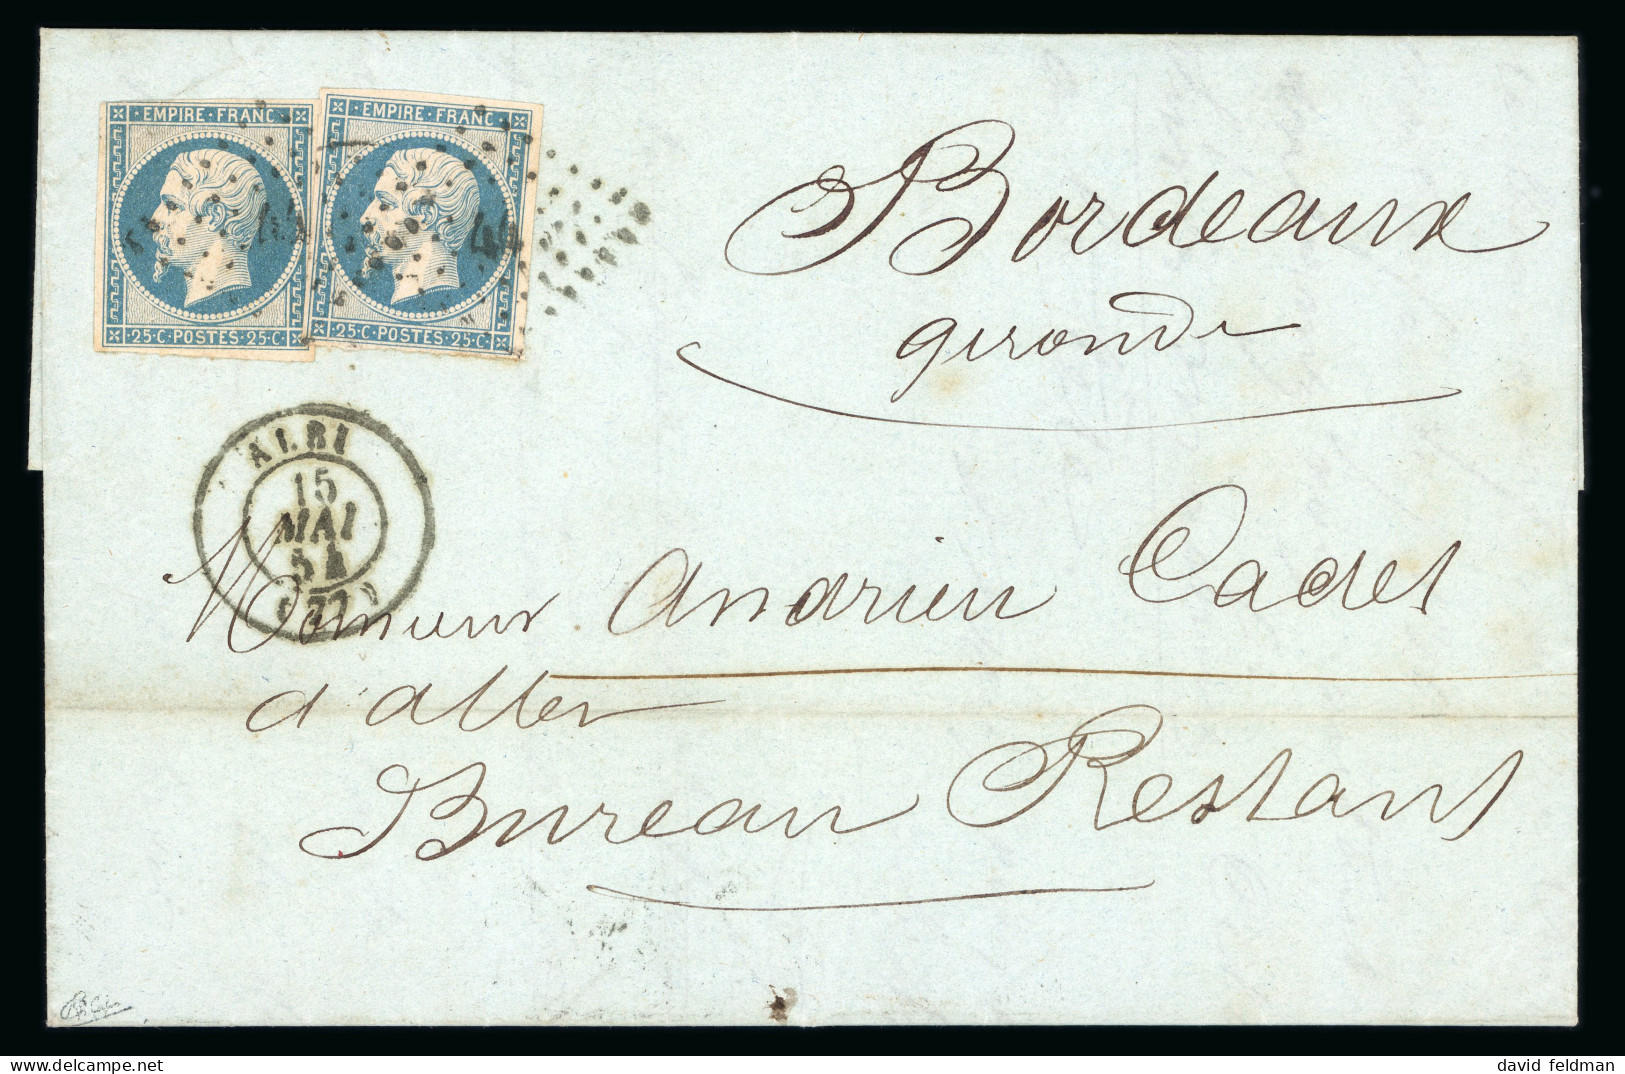 EMPIRE · FRANC
EMPIRE · FRANC
25·C·POSTES·25·C
25·C·POSTES·25·C
Bordeaux
gironde
ALBI
15
MAI
54
(77)
Monsieur Andrien Cadet
d'alber
Bureau Restant
david feldman